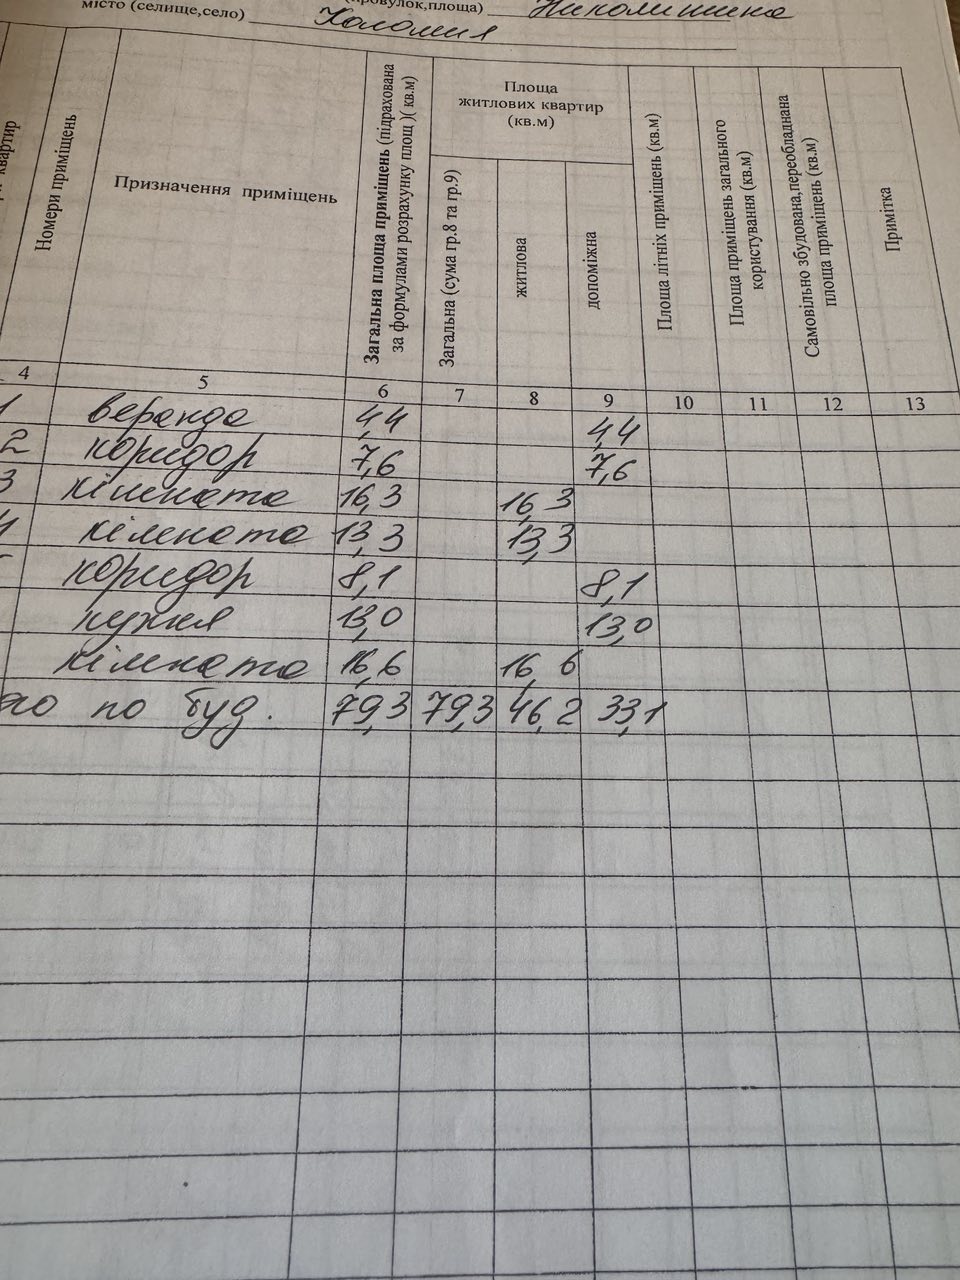 місто (селище,село) Коломия
площа)
Номери приміщень
Призначення приміщень
Загальна площа приміщень (підрахована за формулами розрахунку площ )( кв.м)
Площа
житлових квартир
(кв.м)
Загальна (сума гр.8 та гр.9)
житлова
допоміжна
Площа літніх приміщень (кв.м)
Площа приміщень загального користування (кв.м)
Самовільно збудована,переобладнана площа приміщень (кв.м)
Примітка
4 5 6 7 8 9 10 11 12 13
1 веранда 4,4 4,4
2 коридор 7,6 7,6
3 кімната 16,3 16,3
4 кімната 13,3 13,3
коридор 8,1 8,1
кухня 13,0 13,0
кімната 16,6 16,6
по буд. 79,3 79,3 46,2 33,1